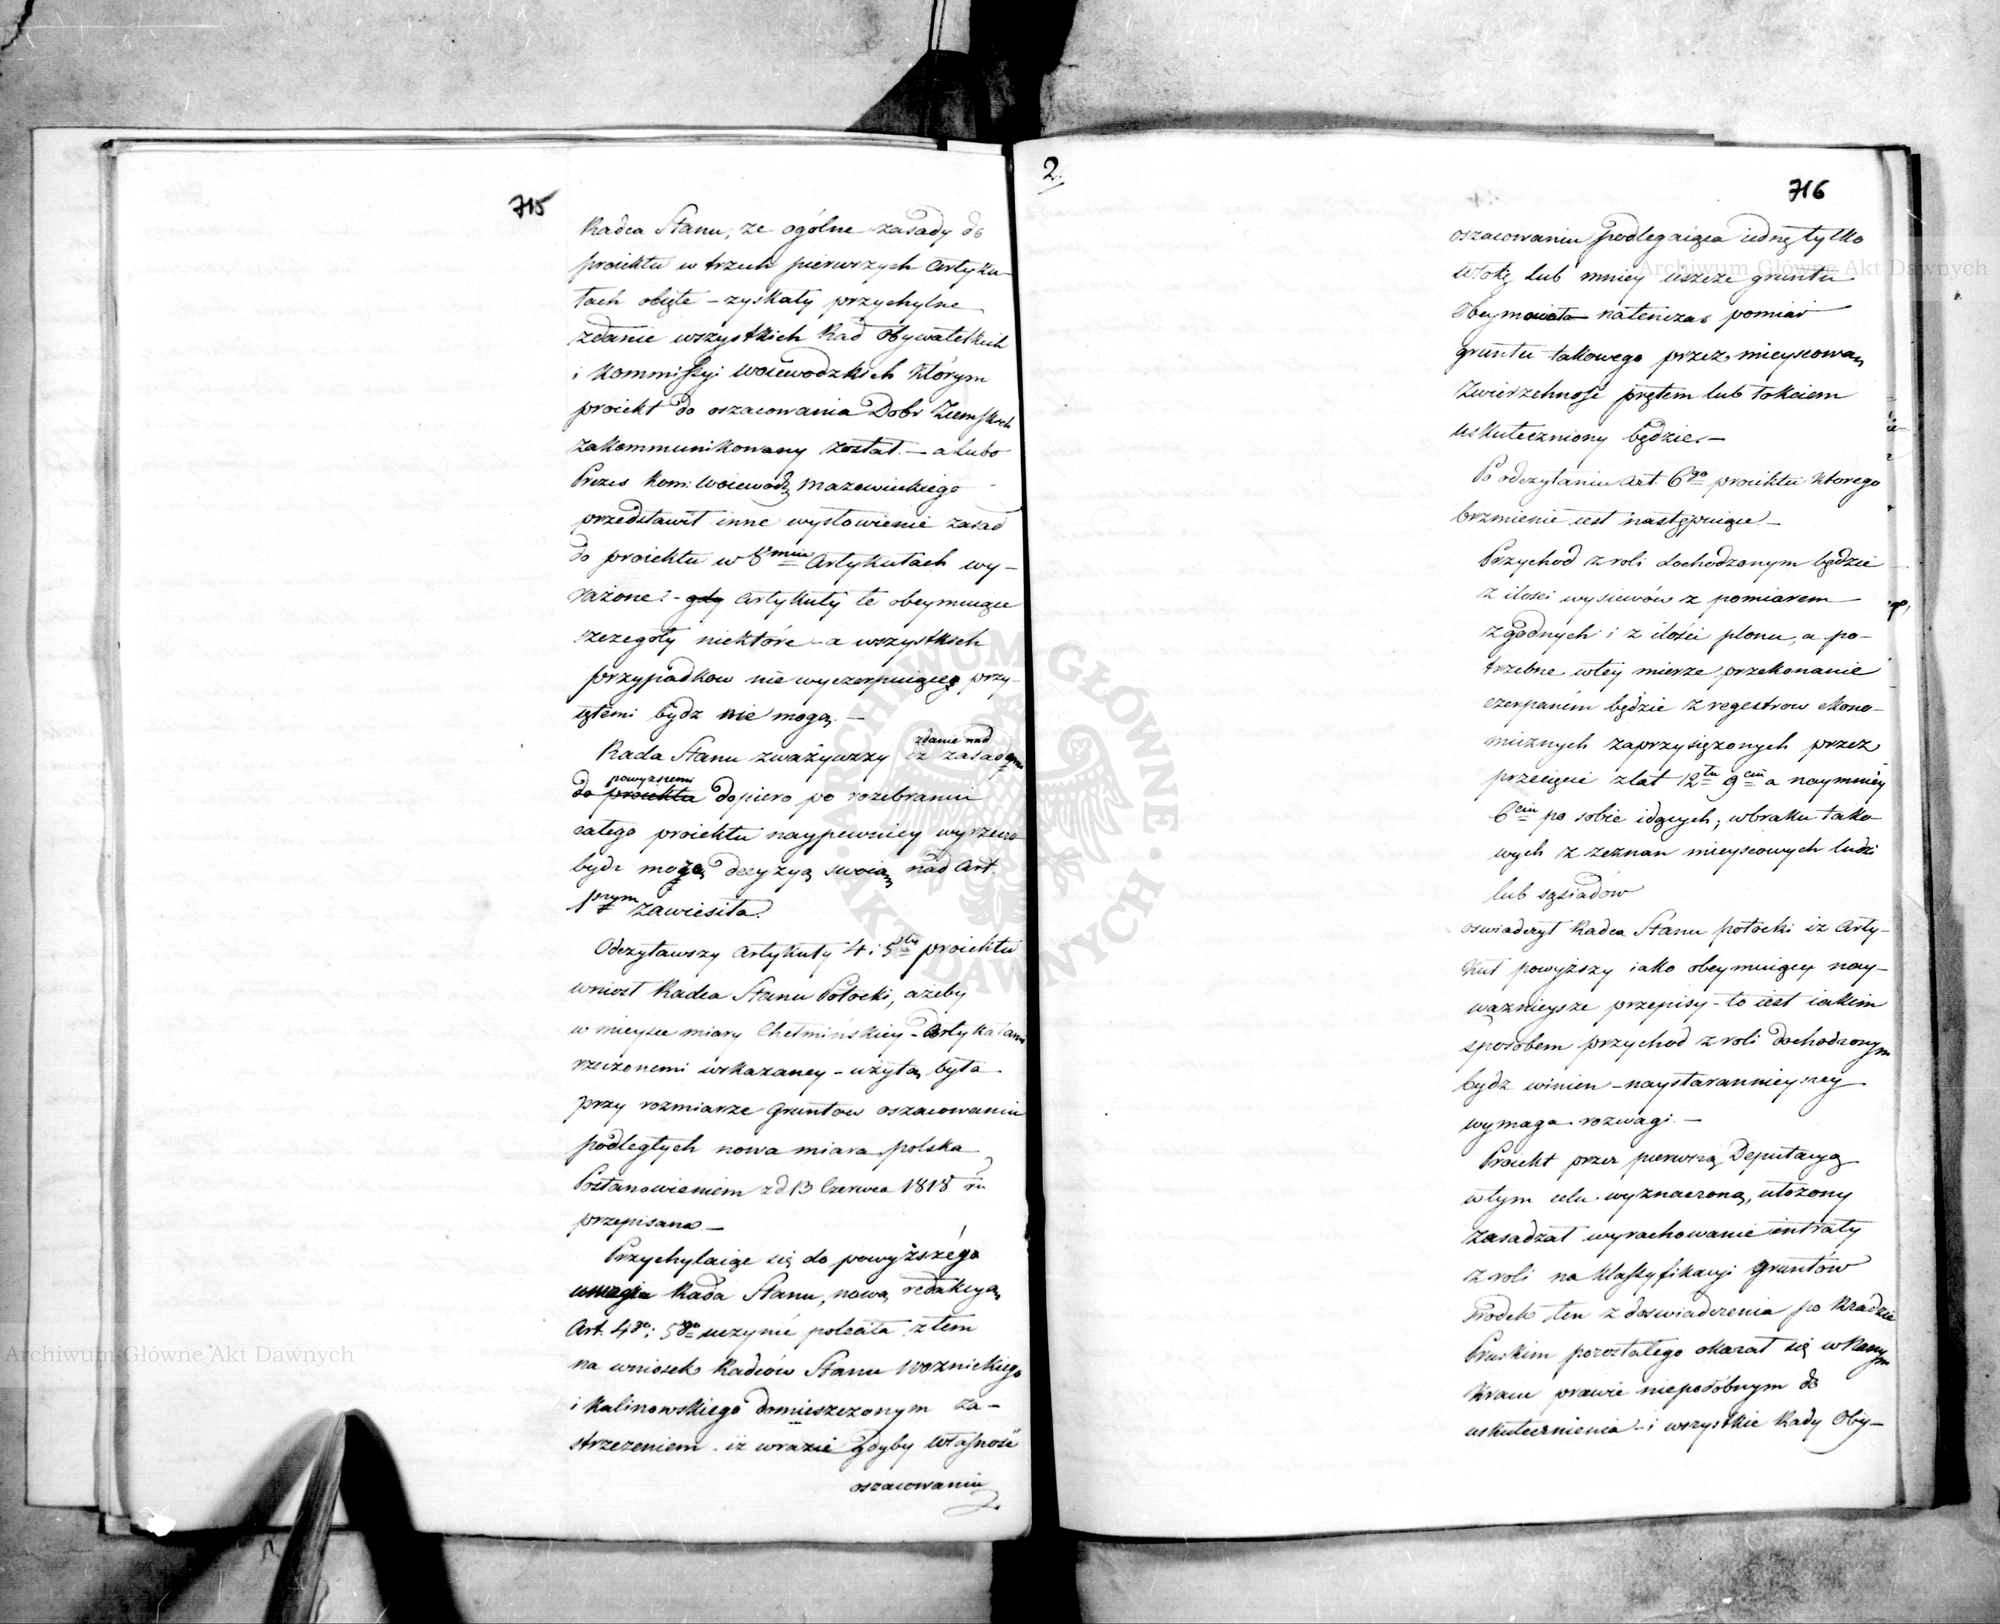 715
Radca Stanu, że ogólne zasady do
proiektu w trzech pierwszych Artyku-
łach obięte – zyskały przychylne
zdanie wszystkich Rad Obywatelskich
i Kommissyi Woiewodzkich którym
proiekt do oszacowania Dobr Ziemskich
zakommunikowany został. – a lubo
Prezes Kom: Woiewodz. Mazowieckiego
przedstawił inne wysłowienie zasad
do proiektu w 6ciu Artykułach wy-
rażone – gdy Artykuły te obeymuiące
szczegóły niektóre – a wszystkich
przypadkow nie wyczerpuiące przy-
iętemi bydz nie mogą. –
Rada Stanu zważywszy iż zdanie nad zasadami
do proiektu powyższemi dopiero po rozebraniu
całego proiektu naypewniey wyrzeczo
bydz może, decyzyą swoią nad Art.
1szym zawiesiła.
Odczytawszy Artykuły 4 i 5ty proiektu
wniosł Radca Stanu Potocki, ażeby
w mieysce miary Chełmińskiey – Artykułami
rzeczonemi wskazaney – użytą była
przy rozmiarze gruntow oszacowaniu
podległych nowa miara polska
Postanowieniem z d. 13 Czerwca 1818 ru
przepisana. –
Przychylaiąc się do powyższego
uwagi Rada Stanu, nową redakcyą
Art. 4go i 5go uczynić poleciła z tem
na wniosek Radców Stanu Woznickiego
i Kalinowskiego domieszczonym za-
strzeżeniem – iż w razie gdyby własność
oszacowaniu
2.
716
oszacowaniu podlegaiąca iednę tylko
włokę lub mniey ieszcze gruntu
obeymowała natenczas pomiar
gruntu takowego przez mieyscową
Zwierzchność prętem lub łokciem
uskuteczniony będzie. –
Po odczytaniu Art. 6go proiektu ktorego
brzmienie iest następuiące –
Przychod z roli dochodzonym będzie
z ilości wysiewów z pomiarem
zgodnych i z ilości plonu, a po-
trzebne w tey mierze przekonanie
czerpaném będzie z regestrow ekono-
micznych zaprzysiężonych przez
przecięcie z lat 12tu 9ciu a naymniey
6ciu po sobie idących; w braku tako-
wych z zeznan mieyscowych ludzi
lub sąsiadów
oswiadczył Radca Stanu Potocki iż Arty-
kuł powyższy iako obeymuiący nay-
ważnieysze przepisy – to iest iakim
sposobem przychod z roli dochodzonym
bydz winien – naystarannieyszey
wymaga rozwagi. –
Proiekt przez pierwszą Deputacyą
w tym celu wyznaczoną, ułożony
zasadzał wyrachowanie intraty
z roli na klassyfikacyi gruntów
srodek ten z doswiadczenia po Rządzie
Pruskim pozostałego okazał się w Naszym
Kraiu prawie niepodobnym do
uskutecznienia – i wszystkie Rady Oby-
Archiwum Główne Akt Dawnych
Archiwum Główne Akt Dawnych
ARCHIWUM GŁÓWNE AKT DAWNYCH